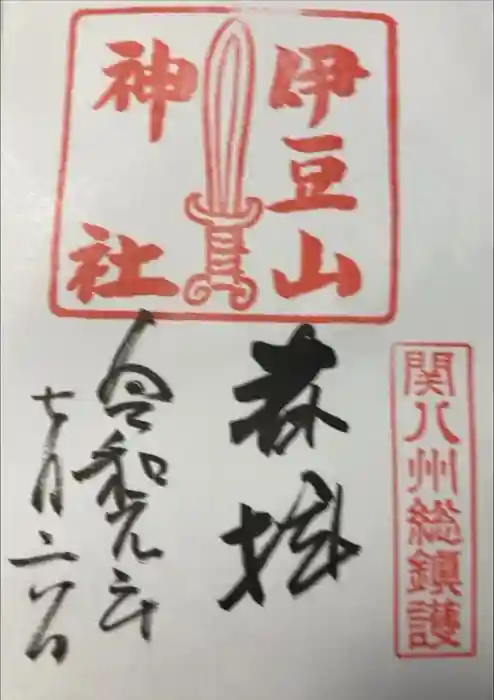 伊豆山
神社
関八州総鎮護
奉拝
令和元年
七月二日